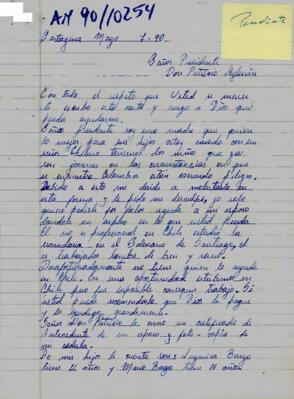 AN 90/10254
Pendiente
Cartagena Mayo 7-90
Señor Presidente
Don Patricio Aylwin
Con todo el respeto que Usted se merece
le escribo esta carta y ruego a Dios que
pueda ayudarme.
Señor presidente soy una madre que quiere
lo mejor para sus hijos, casada con un
señor Chileno tenemos dos niños que ya
son jovenes en las circunstancias en que
se encuentra Colombia estan corriendo peligro.
Debido a esto me decido a molestarle en
esta forma y le pido me disculpe, yo solo
quiero pedirle por favor ayude a mi esposo
dandole un empleo en lo que usted pueda.
El no es profesional en Chile estudió la
secundaria en el Seminario de Santiago, el
es trabajador hombre de bien y sano.
Desafortunadamente no tiene quien lo ayude
en Chile. En una oportunidad estuvimos en
Chile pero fue imposible conseguir trabajo. Si
usted puede recomendarlo que Dios le pague
y lo bendiga grandemente.
Señor Don Patricio le envio un certificado de
Antecedente de mi esposo y foto-copia de
mi cedula.
De mis hijos le cuento son:
tiene 12 años y Mario tiene 10 años